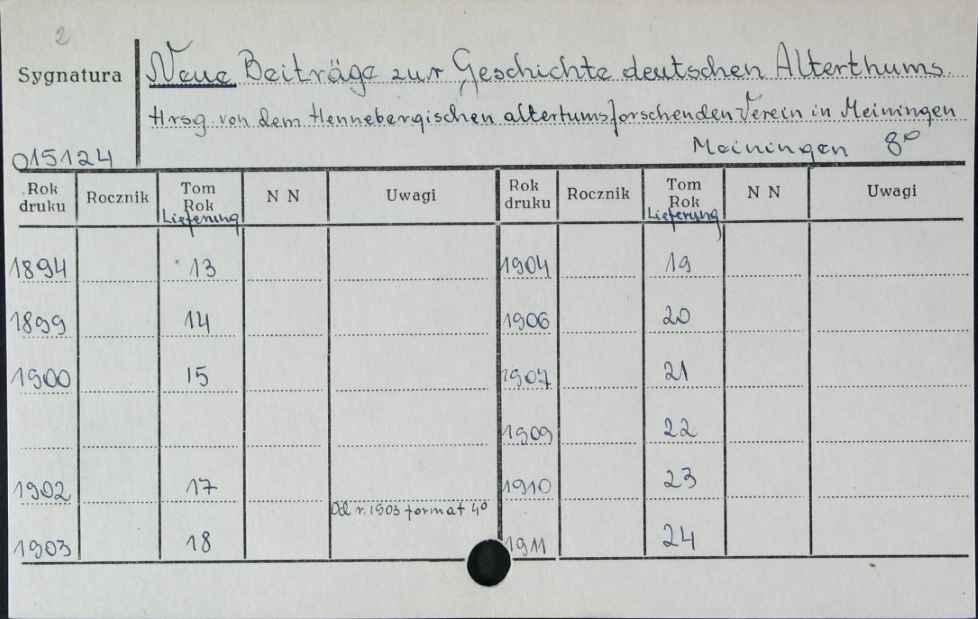 2
Sygnatura
Neue Beiträge zur Geschichte deutschen Alterthums.
Hrsg. von dem Hennebergischen altertumsforschenden Verein in Meiningen
015124 Meiningen 8º
Rok druku Rocznik Tom Rok Lieferung N N Uwagi Rok druku Rocznik Tom Rok Lieferung N N Uwagi
1894 13 1904 19
1899 14 1906 20
1900 15 1907 21
1909 22
1902 17 1910 23
Od r. 1903 format 4º
1903 18 1911 24